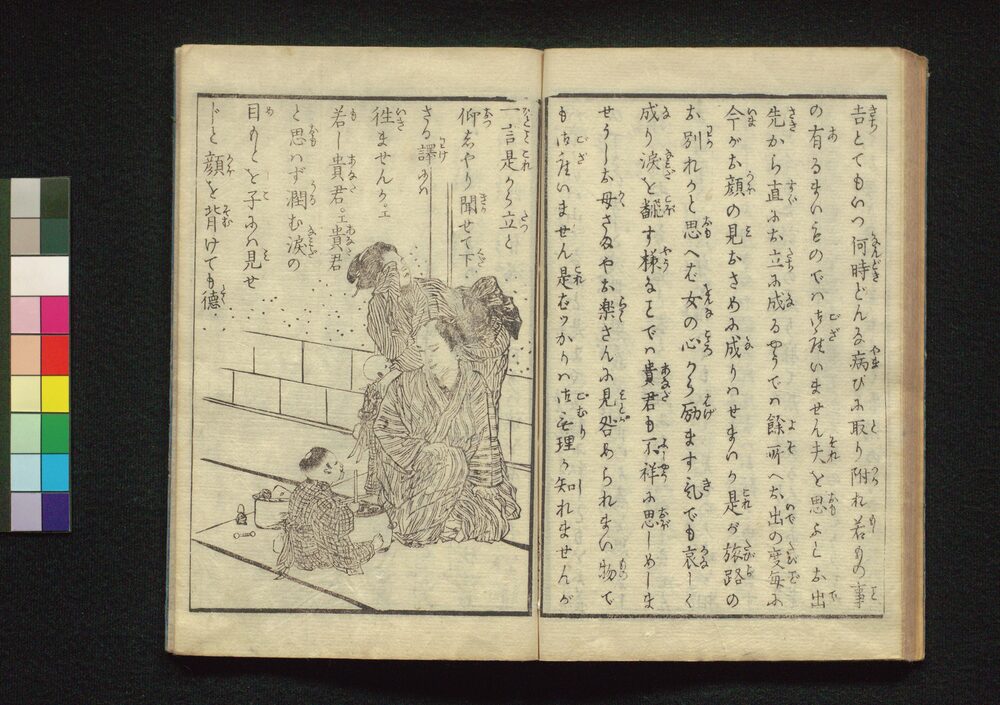 吉とてもいつ何時どんな病びに取り附れ若もの事
の有るまいものでハ御座いません夫を思ふとお出
先から直にお立に成るやうでハ餘所へお出の度毎に
今がお顔の見おさめに成りハせまいか是が旅路の
お別れかと思へば女の心から励ます気でも哀しく
成り涙を翻す様なことでハ貴君も不祥に思しめしま
せうしお母さまやお楽さんに見咎められまい物で
も御座いません是ばツかりハ御無理か知れませんが
一言是から立と
仰しやり聞せて下
さる譯にハ
徃ませんか。エ
若し貴君。エ貴君
と思ハず潤む涙の
目もとを子にハ見せ
じと顔を背けても徳